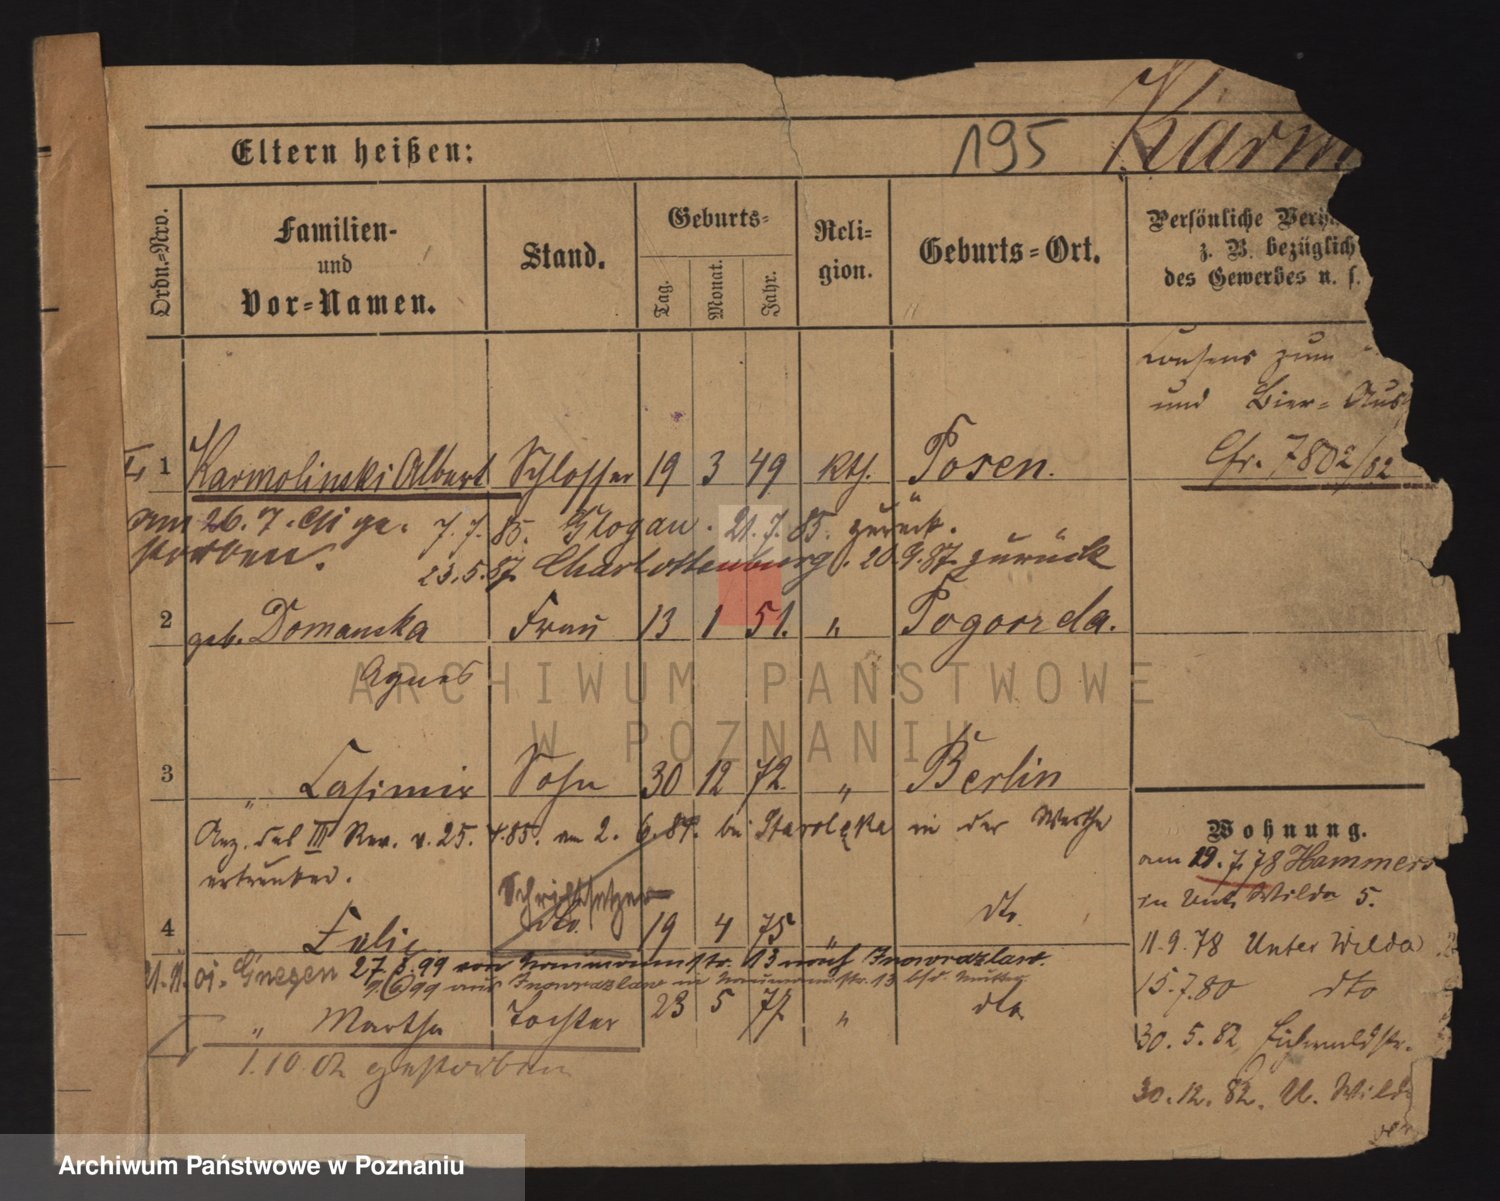 195 Karm
Eltern heißen:
Ordn.-Nro.
Familien-
und
Vor-Namen.
Stand.
Geburts-
Tag.
Monat.
Jahr.
Reli-
gion.
Geburts-Ort.
Persönliche Verh
z. B. bezüglich
des Gewerbes u. s.
Consens zum
und Bier- Aus
Cfr. 7802/82
1 Karmolinski Albert Schlosser 19 3 49 kth. Posen.
am 26. 7. ge-
storben. 7.7.85. Glogau. 21.7.85. zurück.
23.5.87. Charlottenburg. 20.9.87. zurück
2 geb. Domanska Frau 13 1 51. " Pogorzela.
Agnes
3 " Casimir Sohn 30 12 72. " Berlin
Anz. des III Rev. v. 25. 7.85. am 2. 6. bei Starolęka in der Warthe
ertrunken.
Schriftsetzer
4 dto. 19 4 75 " dto.
21.11.01. Gnesen 27.3.99 von Naumannstr. 13 nach Inowrazlaw.
99 aus Inowrazlaw in Naumannstr. 13 bsd. Mutter
" Martha Tochter 23 5 77 " dto
1.10.02 gestorben
Wohnung.
am 19.7.78 Hammers
in Unt. Wilda 5.
11.9.78 Unter Wilda
15.7.80 dto
30.5.82 Eichwaldstr.
30.12.82. U. Wilda
ARCHIWUM PAŃSTWOWE
W POZNANIU
Archiwum Państwowe w Poznaniu